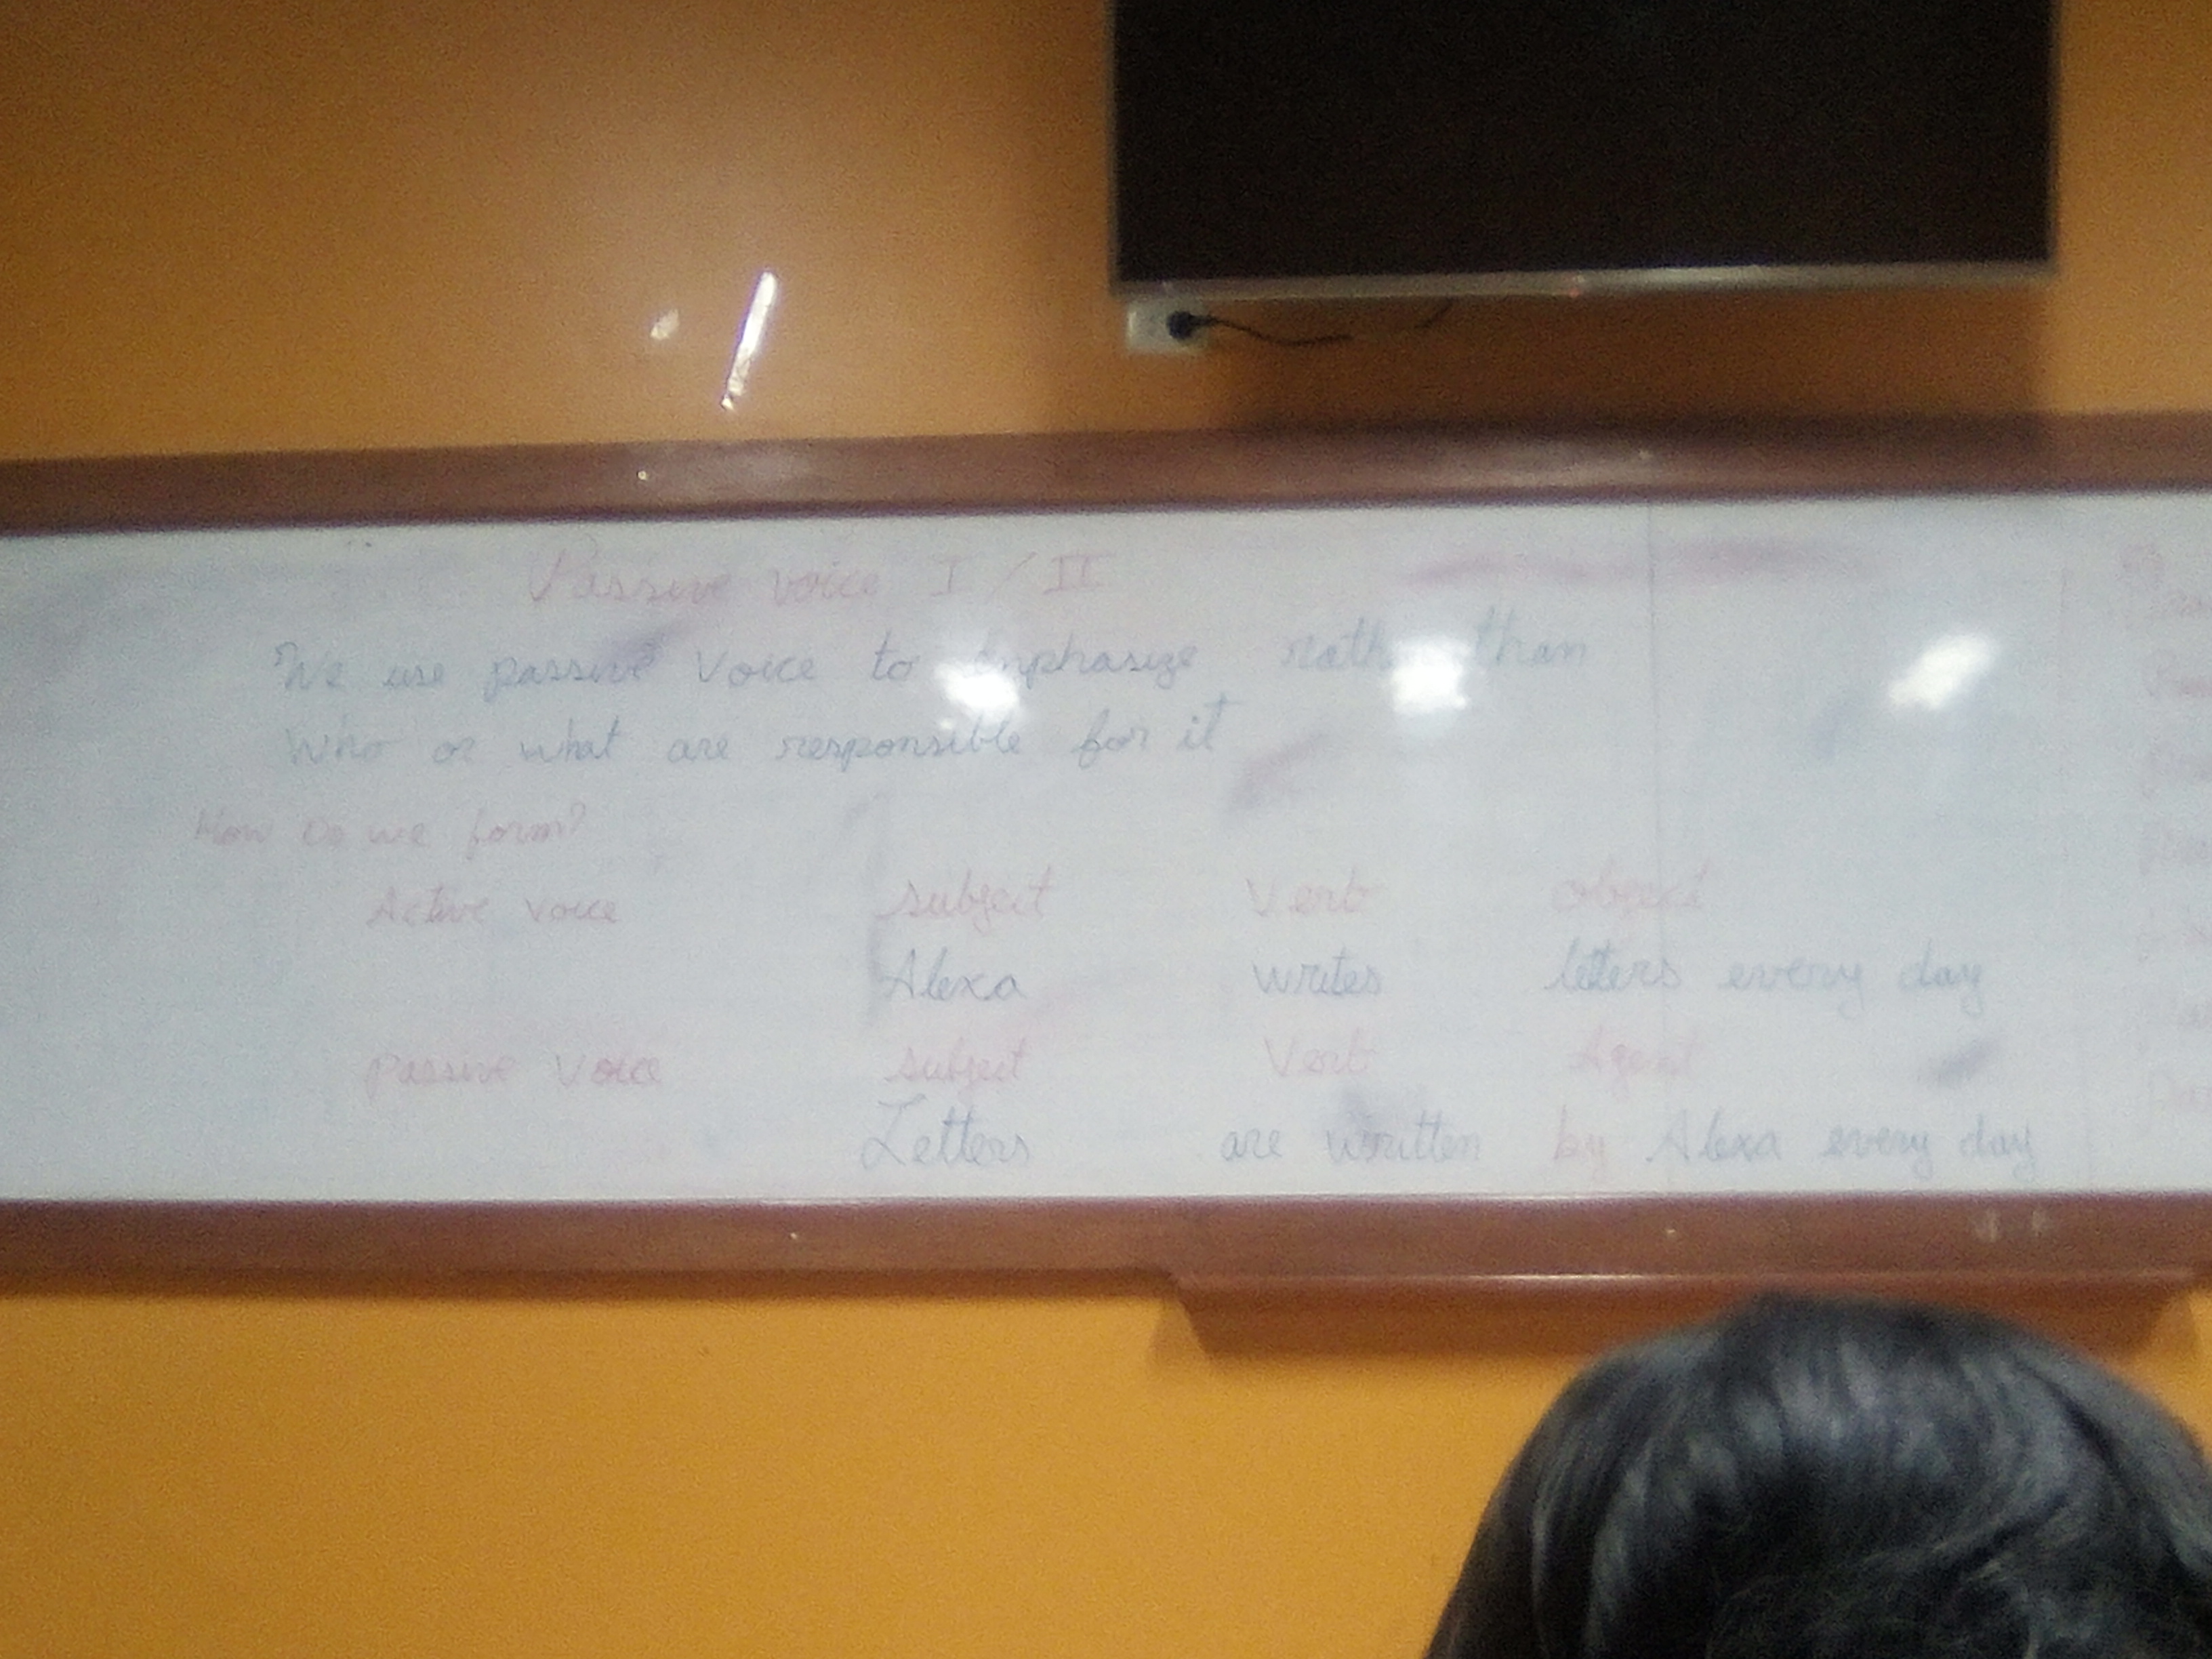 Passive voice I / II
We use passive Voice to Enphasize rather than
Who or what are responsible for it
How Do we form?
Active Voice subject Verb object
Alexa writes letters every day
passive Voice subject Verb Agent
Letters are written by Alexa every day